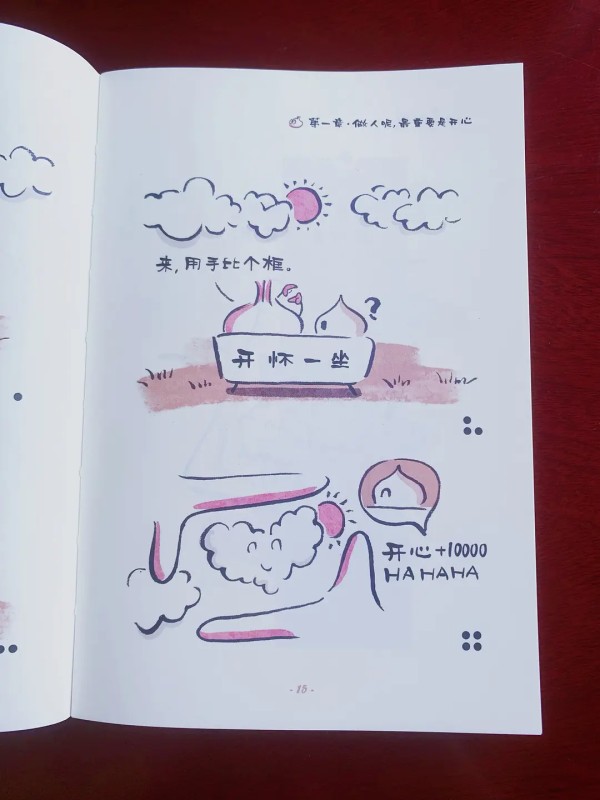 第一章·做人呢,最重要是开心
来,用手比个框。
?
开怀一坐
开心+10000
HAHAHA
- 15 -